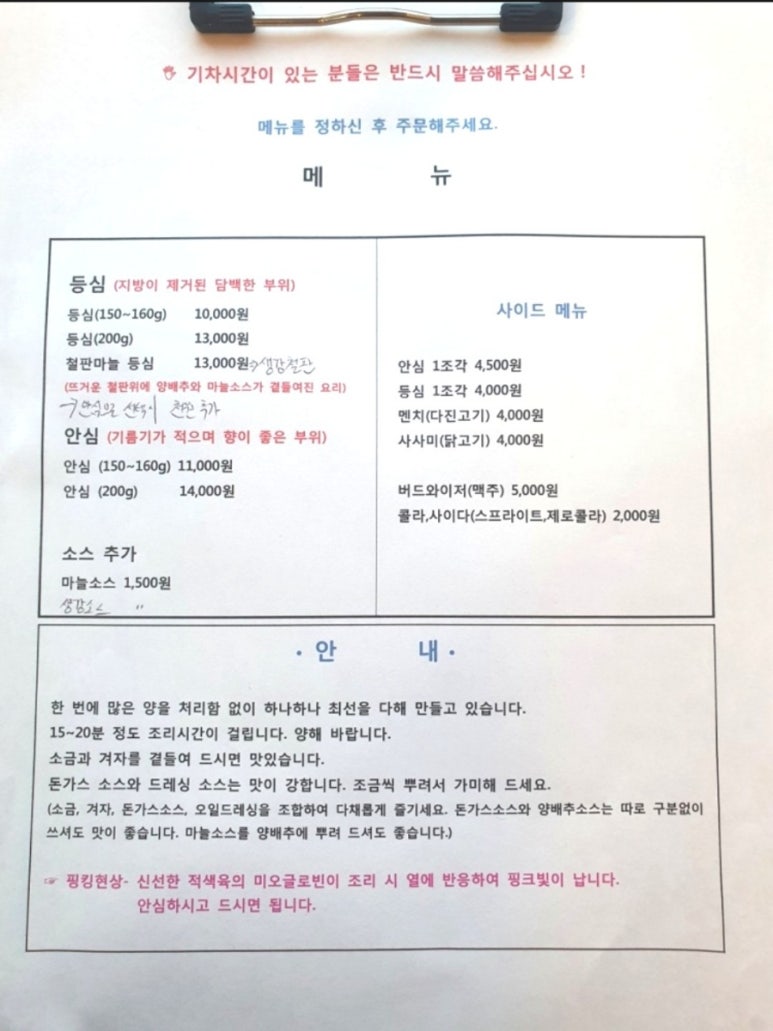 기차시간이 있는 분들은 반드시 말씀해주십시오!
메뉴를 정하신 후 주문해주세요.
메 뉴
등심 (지방이 제거된 담백한 부위)
등심(150~160g) 10,000원
등심(200g) 13,000원
철판마늘 등심 13,000원 → 생강철판
(뜨거운 철판위에 양배추와 마늘소스가 곁들여진 요리)
→ 안심으로 선택시 천원 추가
안심 (기름기가 적으며 향이 좋은 부위)
안심 (150~160g) 11,000원
안심 (200g) 14,000원
소스 추가
마늘소스 1,500원
생강소스 〃
사이드 메뉴
안심 1조각 4,500원
등심 1조각 4,000원
멘치(다진고기) 4,000원
사사미(닭고기) 4,000원
버드와이저(맥주) 5,000원
콜라,사이다(스프라이트,제로콜라) 2,000원
·안 내·
한 번에 많은 양을 처리함 없이 하나하나 최선을 다해 만들고 있습니다.
15~20분 정도 조리시간이 걸립니다. 양해 바랍니다.
소금과 겨자를 곁들여 드시면 맛있습니다.
돈가스 소스와 드레싱 소스는 맛이 강합니다. 조금씩 뿌려서 가미해 드세요.
(소금, 겨자, 돈가스소스, 오일드레싱을 조합하여 다채롭게 즐기세요. 돈가스소스와 양배추소스는 따로 구분없이
쓰셔도 맛이 좋습니다. 마늘소스를 양배추에 뿌려 드셔도 좋습니다.)
☞ 핑킹현상- 신선한 적색육의 미오글로빈이 조리 시 열에 반응하여 핑크빛이 납니다.
안심하시고 드시면 됩니다.